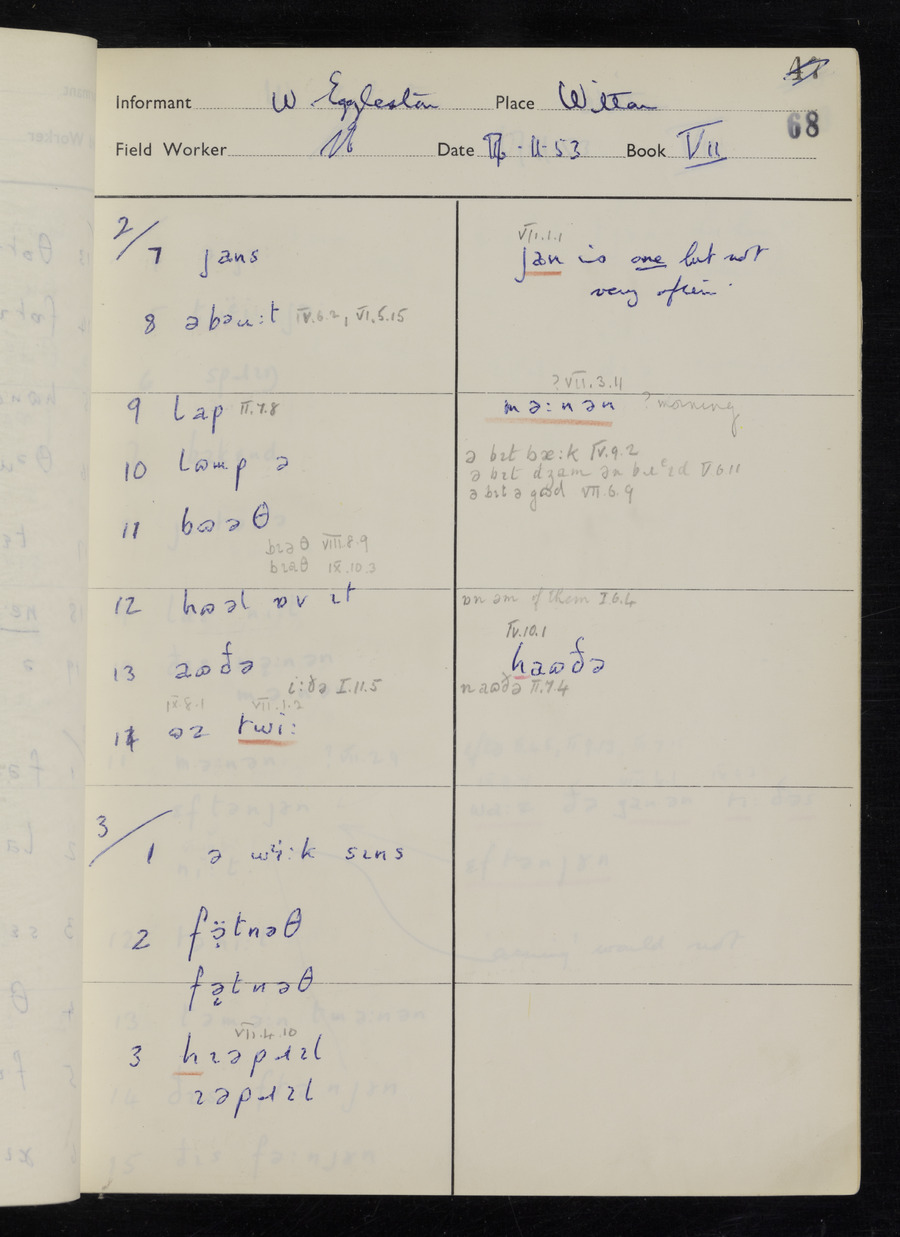 68
Informant W Eggleston Place Witton
Field Worker Date 11-53 Book VII
2/7 jans
VII.1.1
jan is one but not
very often.
8 əbəu:t IV.6.2, VI.5.15
? VII.3.11
9 lap II.7.8
mə:nən ? morning
10 lɒmp ə
ə bɪt bæ:k IV.9.2
ə bɪt dʒam ən bɹɛᵊd V 6 11
ə bɪt ə gɒd VII.6.9
11 bɒəθ
bɪəθ VIII.8.9
bɪaθ IX.10.3
12 hɒəl ɒv ɪt
ɒn əm of them I.6.4
IV.10.1
13 aɒðə
haɒðə
i:ðə I.11.5
naɒðə II.7.4
IX 8.1 VII.1.2
14 ɒz twi:
3/1 ə wïi:k sɪns
2 fɔ̣̈tnəθ
fə̣tnəθ
VII.4.10
3 hɪəpɹɪl
ɪəpɹɪl